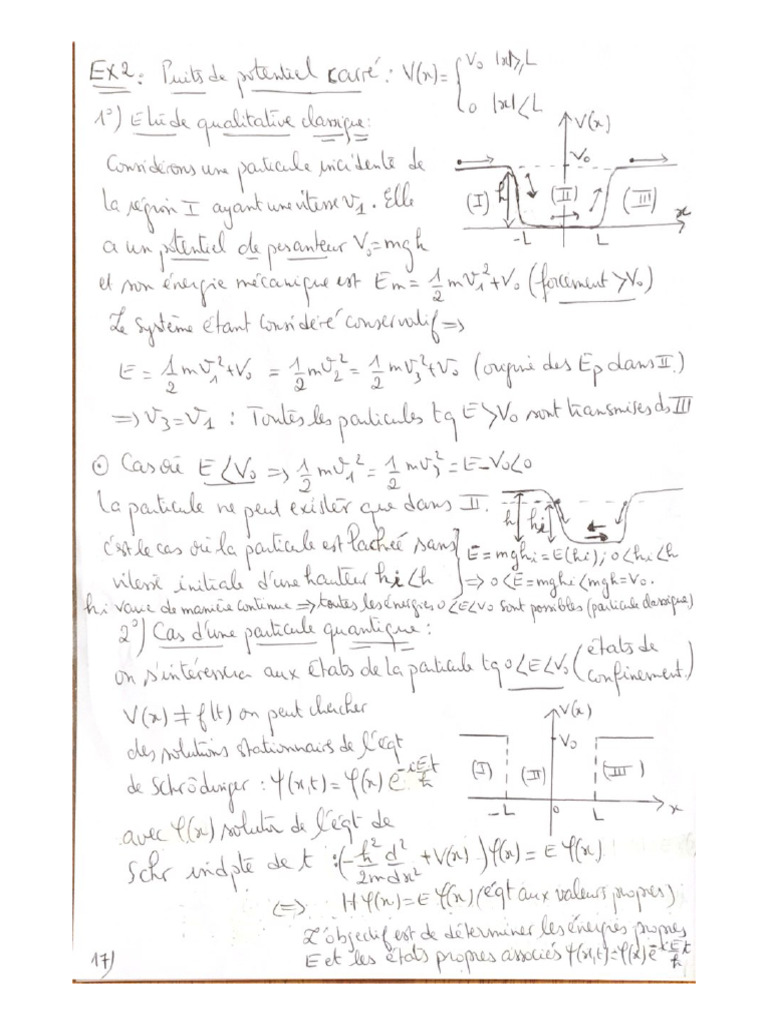 EX2: Puits de potentiel carré: V(x)= { V₀ |x|⩾L
0 |x|<L
1°) Etude qualitative classique:
V(x)
V₀
Considérons une particule incidente de
la région I ayant une vitesse v₁. Elle
(I) h (II) (III) x
-L L
a un potentiel de pesanteur V₀=mgh
et son énergie mécanique est Em= 1/2 mv₁²+V₀ (forcement >V₀)
Le système étant considéré conservatif =>
E = 1/2 mv₁²+V₀ = 1/2 mv₂² = 1/2 mv₃²+V₀ (origine des Ep dans II.)
=> v₃=v₁ : Toutes les particules tq E>V₀ sont transmises ds III
⊙ Cas où E<V₀ => 1/2 mv₁² = 1/2 mv₃² = E-V₀<0
La particule ne peut exister que dans II.
h hi
c'est le cas où la particule est lachée sans
vitesse initiale d'une hauteur hi<h
E=mghi=E(hi); 0<hi<h
=> 0<E=mghi<mgh=V₀.
hi varie de manière continue => toutes les énergies 0<E<V₀ sont possibles (particule classique)
2°) Cas d'une particule quantique:
on s'intéressera aux états de la particule tq 0<E<V₀ (états de
confinement.)
V(x) ≠ f(t) on peut chercher
des solutions stationnaires de l'éqt
de Schrödinger : ψ(x,t)=φ(x) e^-iEt/ħ
V(x)
V₀
(I) (II) (III)
-L 0 L x
avec φ(x) solution de l'éqt de
Schr indpte de t :(-ħ²/2m d²/dx² +V(x))φ(x) = E φ(x).
<=> Hφ(x)=E φ(x) (éqt aux valeurs propres)
L'objectif est de déterminer les énergies propres
E et les états propres associés ψ(x,t)=φ(x)e^-iEt/ħ
17)